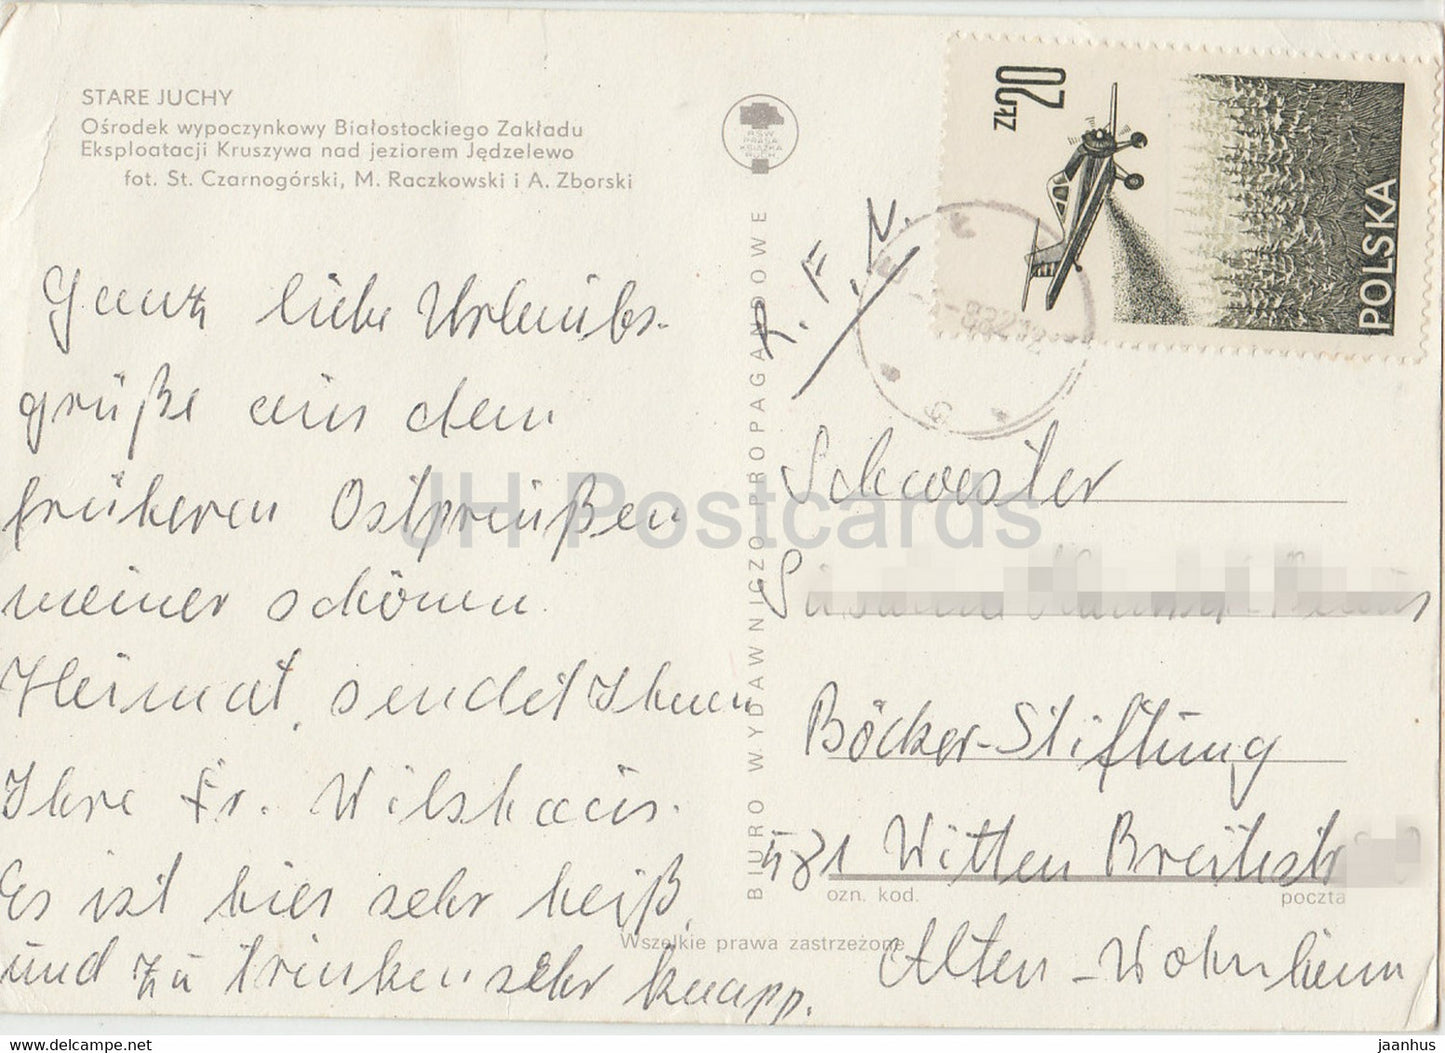 STARE JUCHY
Ośrodek wypoczynkowy Białostockiego Zakładu
Eksploatacji Kruszywa nad jeziorem Jędzelewo
fot. St. Czarnogórski, M. Raczkowski i A. Zborski
RSW
PRASA
KSIĄŻKA
RUCH
20 ZŁ
POLSKA
R. F. N.
Ganz liebe Urlaubs-
grüße aus dem
früheren Ostpreußen
meiner schönen
Heimat, sendet Ihnen
Ihre Fr. Wilshaus.
Es ist hier sehr heiß,
und zu trinken sehr knapp.
BIURO WYDAWNICZO-PROPAGANDOWE
Schwester
Böcker-Stiftung
581 Witten Breitestr
ozn. kod. poczta
Alten-Wohnheim
Wszelkie prawa zastrzeżone
JH Postcards
www.jhpostcards.com
jaanhus